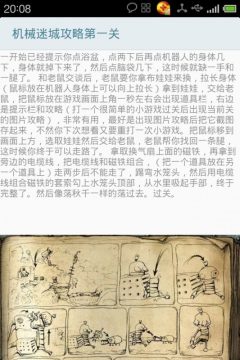 20:08
机械迷城攻略第一关
一开始已经提示你点浴盆，点两下后再点机器人的身体几
下，身体就掉下来了，然后点脑袋几下，这时候就缺一手和
一腿了。 和老鼠交谈后，老鼠要你拿布娃娃来换，拉长身体
（鼠标放在机器人身体上可以向上拉长）拿到娃娃，交给老
鼠，把鼠标放在游戏画面上角一秒左右会出现道具栏，右边
是提示栏和攻略（打一个很简单的小游戏过关后出现当前关
的图片攻略），非常有用，最好是出现图片攻略后把它截图
存起来，不然你下次想看又要重打一次小游戏。把鼠标移到
画面上方，选取娃娃后交给老鼠，老鼠帮你找回一条腿，
这时候你终于可以走路了。 拿取换气扇上面的磁铁，再拿到
旁边的电缆线，把电缆线和磁铁组合，（把一个道具放在另
一个道具上）走两步后不能走了，踢弯水笼头，然后用电缆
线组合磁铁的套索勾上水笼头顶部，从水里吸起手部，终于
完整了。然后像荡秋千一样的荡过去。过关。